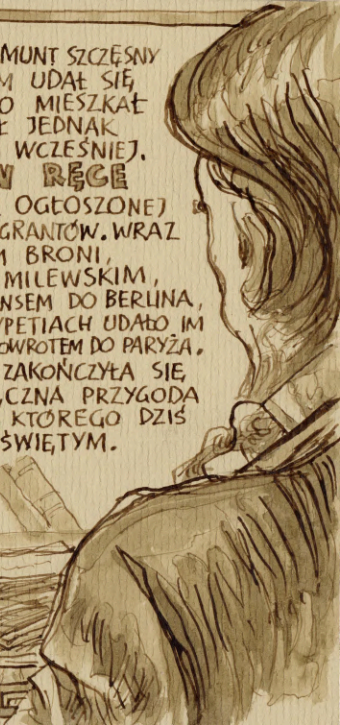 MUNT SZCZĘSNY
M UDAŁ SIĘ
O MIESZKAŁ
Ł JEDNAK
WCZEŚNIEJ.
W RĘCE
OGŁOSZONEJ
GRANTÓW. WRAZ
M BRONI,
MILEWSKIM,
NSEM DO BERLINA,
YPETIACH UDAŁO IM
OWROTEM DO PARYŻA.
ZAKOŃCZYŁA SIĘ
ĘCZNA PRZYGODA
KTÓREGO DZIŚ
ŚWIĘTYM.